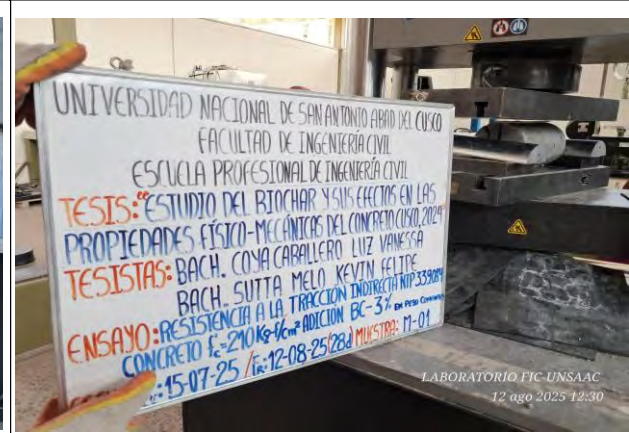 UNIVERSIDAD NACIONAL DE SAN ANTONIO ABAD DEL CUSCO
FACULTAD DE INGENIERÍA CIVIL
ESCUELA PROFESIONAL DE INGENIERÍA CIVIL
TESIS: "ESTUDIO DEL BIOCHAR Y SUS EFECTOS EN LAS
PROPIEDADES FÍSICO-MECÁNICAS DEL CONCRETO CUSCO, 2024"
TESISTAS: BACH. COYA CABALLERO LUZ VANESSA
BACH. SUTTA MELO KEVIN FELIPE
ENSAYO: RESISTENCIA A LA TRACCIÓN INDIRECTA NTP 339.084
CONCRETO f'c=210 Kg-f/cm² ADICIÓN BC-3% EN PESO
15-07-25 / FR: 12-08-25 (28d) MUESTRA: M-01
LABORATORIO FIC-UNSAAC
12 ago 2025 12:30